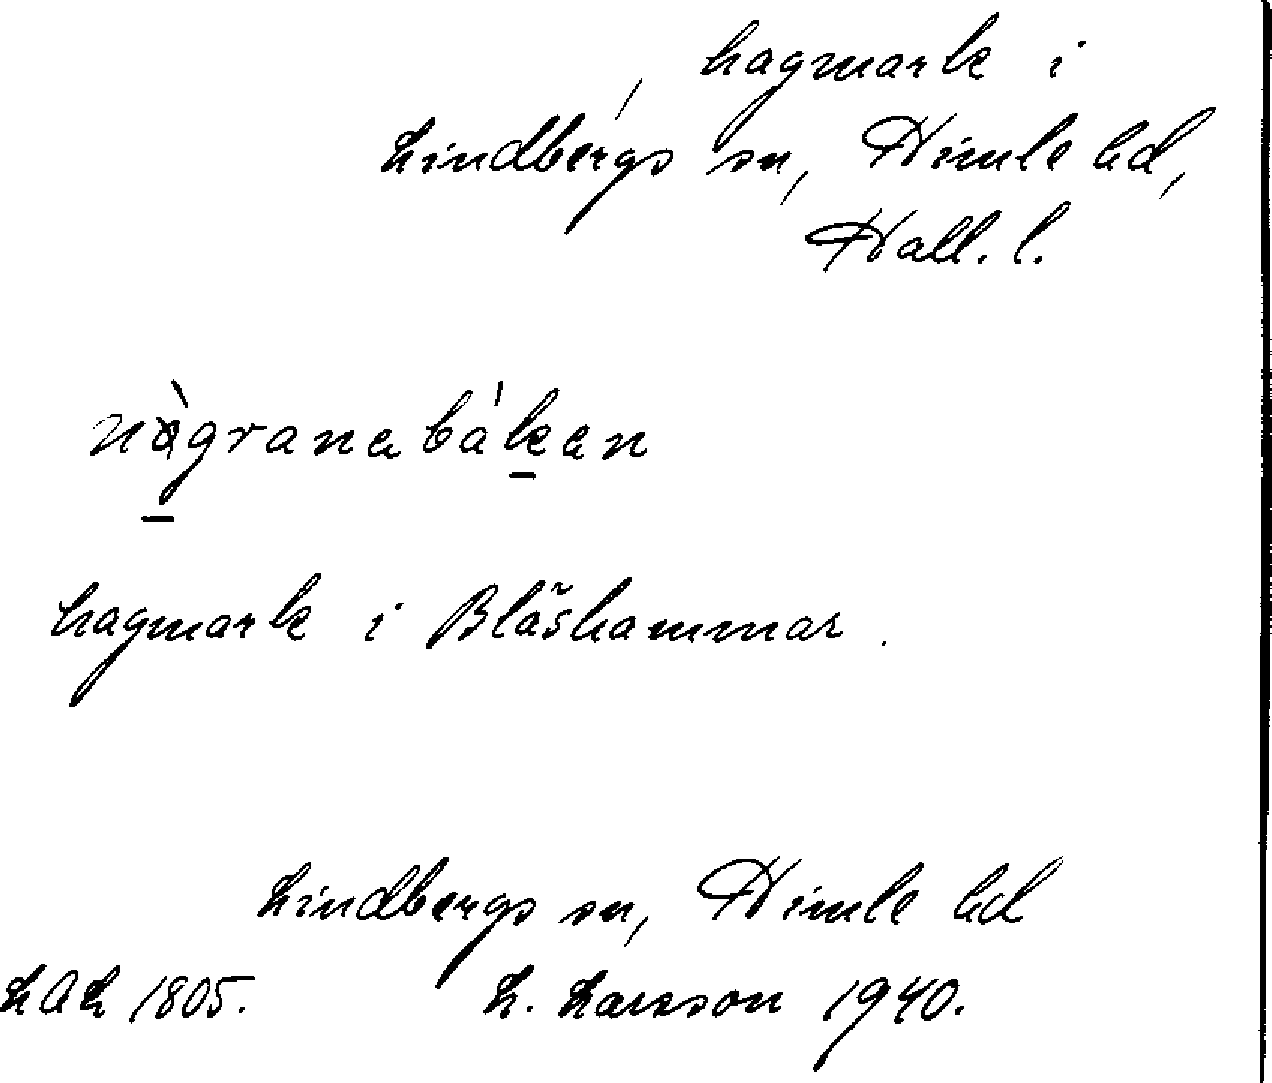 , hagmark i
Lindbergs sn, Himle hd,
Hall. l.
nàgranabákan
hagmark i Blåshammar.
Lindbergs sn, Himle hd
LAL 1805. L. Larsson 1940.